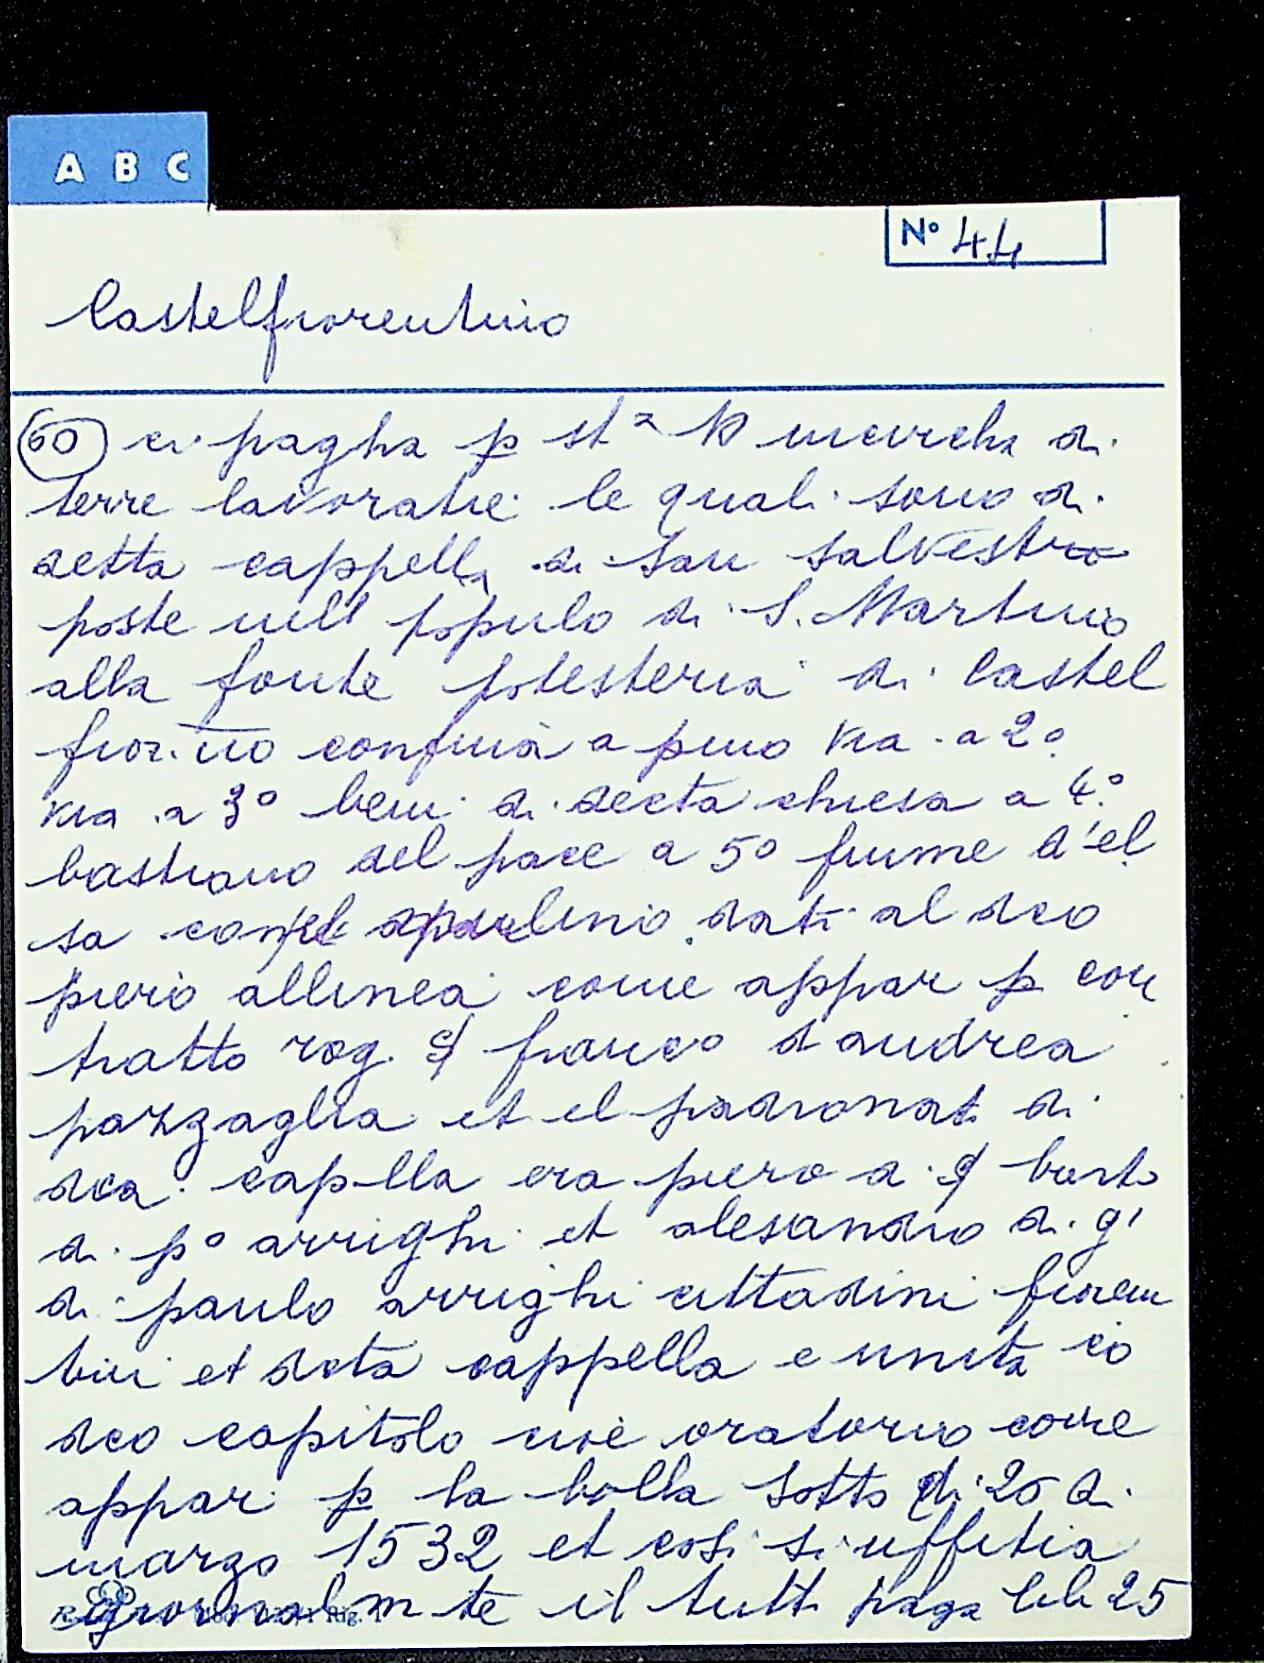 A B C
N° 44
Castelfiorentino
60 ci pagha p st a 10 incircha di
terre lavoratie le quali sono di
detta cappella di san salvestro
poste nell populo di S. Martino
alla fonte potesteria di Castel
fior.no confina a pimo via a 2°
via a 3° beni di decta chiesa a 4°
bastiano del pace a 5° fiume d'el
sa con dati al dco
piero allinea come appar p con
tratto rog. franco d andrea
pazzaglia et el padronati di
dca capella era piero di barto
di p° arrighi et alesandro di g'
di paulo arrighi cittadini fioren
tini et dcta cappella e unita co
dco capitolo cioè oratorio come
appar p la bolla sotto di 20 di
marzo 1532 et cosi si uffitia
giornalm te il tutt paga lib 25